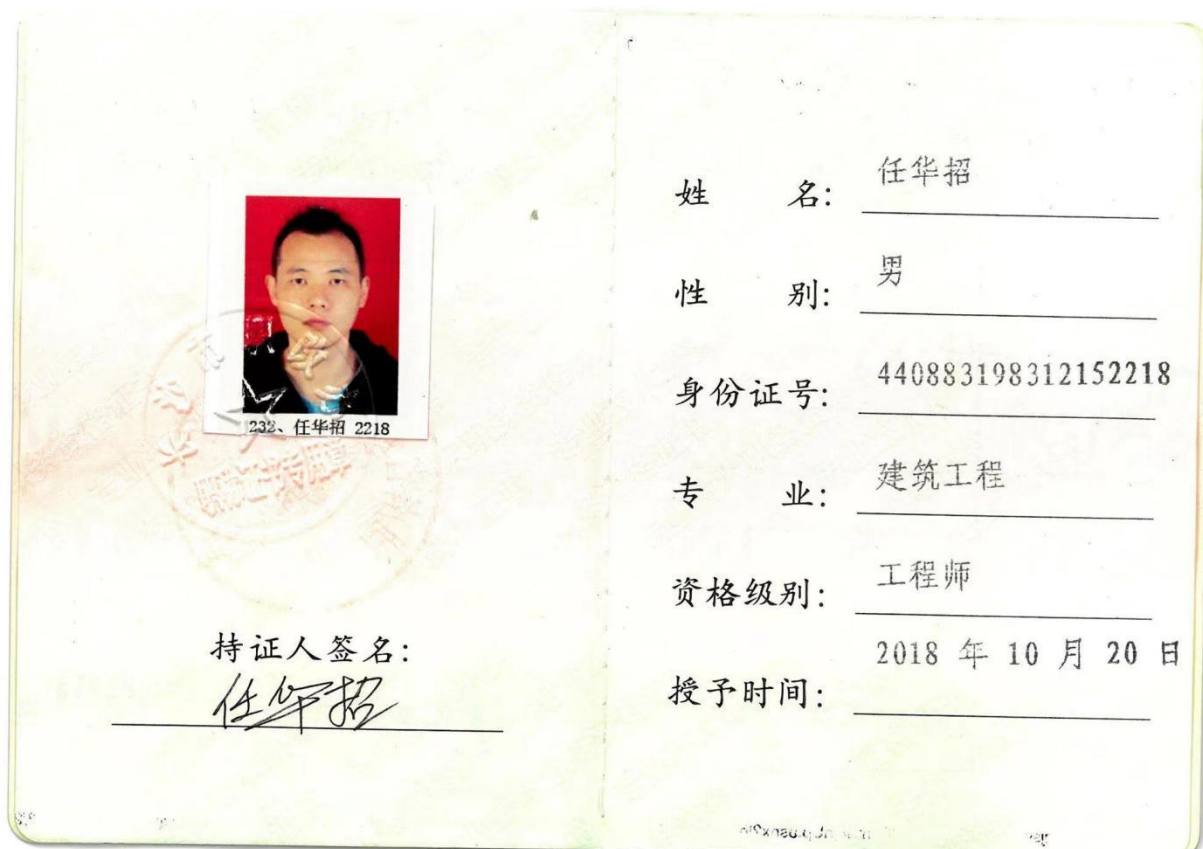 232、任华招 2218
持证人签名:
任华招
姓 名: 任华招
性 别: 男
身份证号: 440883198312152218
专 业: 建筑工程
资格级别: 工程师
授予时间: 2018 年 10 月 20 日